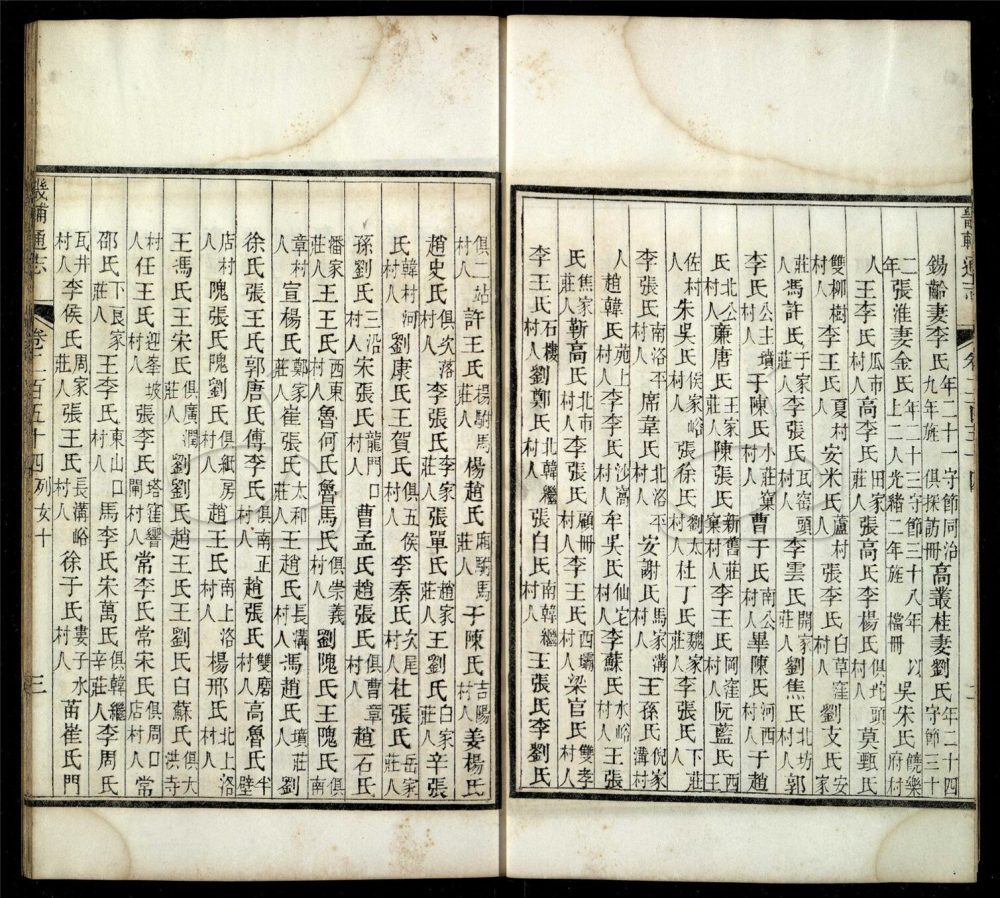 錫齡妻李氏年二十一守節同治九年旌俱採訪冊高叢桂妻劉氏年二十四守節三十
二年張淮妻金氏年二十三守節三十八年上二人光緒二年旌檔冊以吳宋氏饒樂府村
人王李氏瓜市村人高李氏田家莊人張高氏李楊氏俱坨頭村人莫甄氏
雙柳樹村人李王氏夏村人安米氏蘆村人張李氏白草窪村人劉支氏安家
莊人馮許氏于家莊人李張氏瓦窑頭村人李雲氏開家莊人劉焦氏北坊村人郭
李氏公主墳村人于陳氏小莊窠村人曹于氏南公村人畢陳氏河西村人于趙
氏北公村人廉唐氏王家莊人陳張氏新舊莊窠村人李王氏岡窪村人阮藍氏西王
佐村人朱吳氏侯家峪村人張徐氏劉太村人杜丁氏魏家莊人李張氏下莊村
李張氏南洛平村人席韋氏北洛平村人安謝氏馬家溝村人王孫氏倪家溝村
人趙韓氏苑上村人李李氏沙窩村人牟吳氏仙宅村人李蘇氏水峪村人王張
氏焦家莊人靳高氏北市村人李張氏顧冊村人李王氏西壩村人梁官氏雙孝村人
李王氏石樓村人劉鄭氏北韓繼村人張白氏南韓繼村人王張氏李劉氏
俱二站村人許王氏楊駙馬莊人楊趙氏兩駙馬莊人于陳氏吉陽村人姜楊氏
趙史氏俱次落村人李張氏李家莊人張單氏趙家莊人王劉氏白家莊人辛張
氏韓村河村人劉康氏王賀氏俱五侯村人李秦氏次尾村人杜張氏岳家莊人
孫劉氏三沿村人宋張氏龍門口村人曹孟氏趙張氏俱曹章村人趙石氏
潘家莊人王郭氏西東村人魯何氏魯馬氏俱崇義村人劉隗氏王隗氏俱南
章村人宣楊氏鄭家莊人崔張氏太和莊人王趙氏長溝村人馮趙氏墳莊人劉
徐氏張王氏郭唐氏傅李氏俱南正村人趙張氏雙磨村人高魯氏半壁
店村人隗張氏隗劉氏俱紙房村人趙王氏南上洛村人楊邢氏北上洛村人
王馮氏王宋氏俱廣潤莊人劉劉氏趙王氏王劉氏白蘇氏俱大洪寺
村人任王氏迎峯坡村人張李氏塔窪響閘村人常李氏常宋氏俱周口店村人常
邵氏下良家莊人王李氏東山口村人馬李氏宋萬氏俱韓繼辛莊人李周氏
瓦井村人李侯氏周家莊人張王氏長溝峪村人徐于氏婁子水村人苗崔氏門
畿輔通志
卷二百五十四 列女十
三